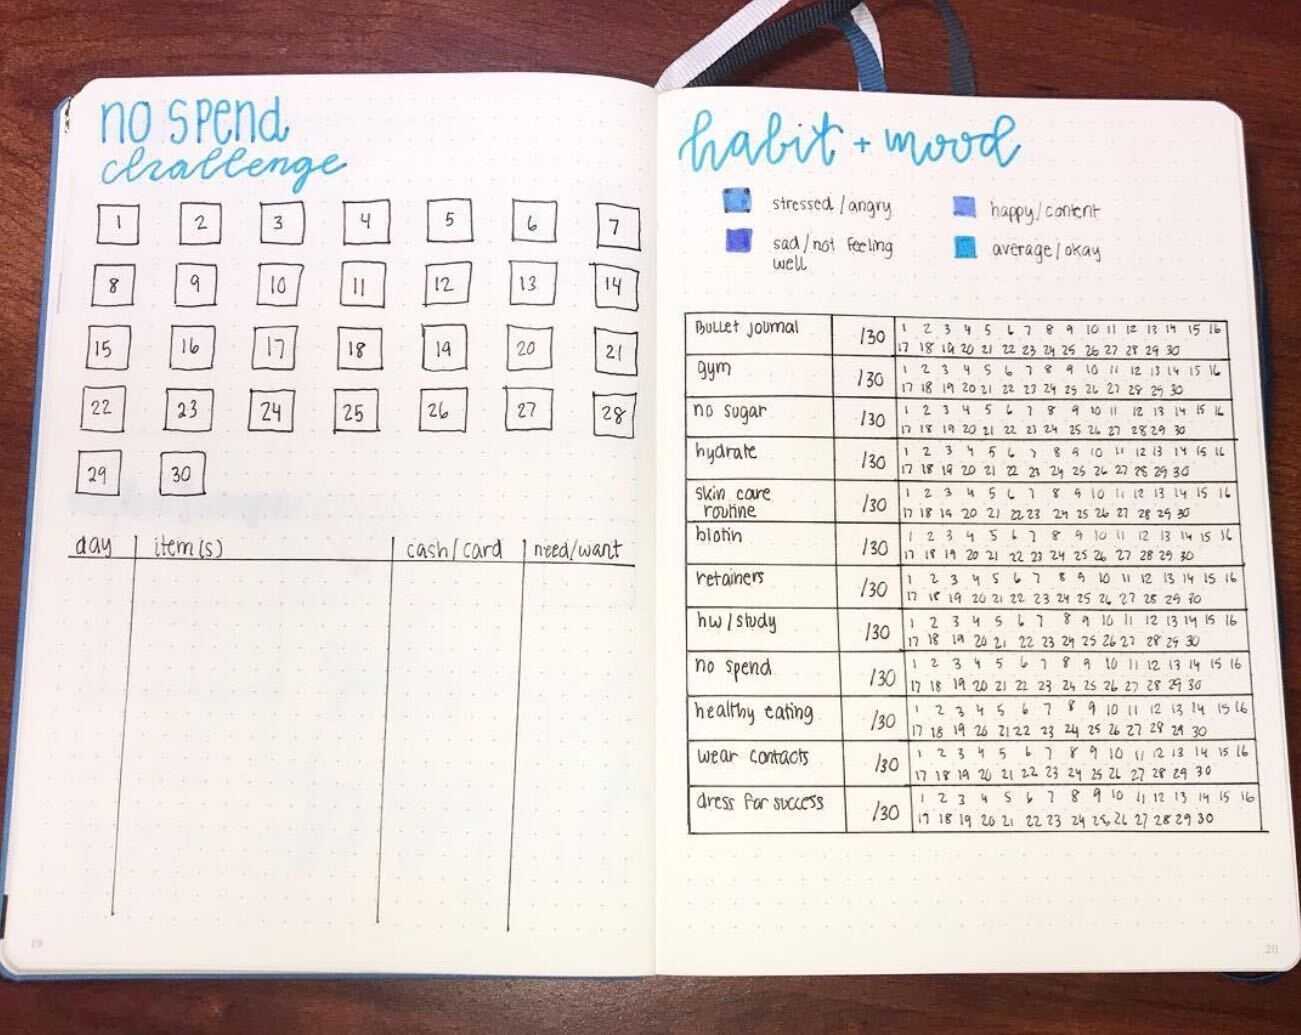 no spend
challenge
1 2 3 4 5 6 7
8 9 10 11 12 13 14
15 16 17 18 19 20 21
22 23 24 25 26 27 28
29 30
day item(s) cash/card need/want
19
habit + mood
stressed/angry happy/content
sad/not feeling average/okay
well
Bullet journal /30 1 2 3 4 5 6 7 8 9 10 11 12 13 14 15 16
17 18 19 20 21 22 23 24 25 26 27 28 29 30
gym /30 1 2 3 4 5 6 7 8 9 10 11 12 13 14 15 16
17 18 19 20 21 22 23 24 25 26 27 28 29 30
no sugar /30 1 2 3 4 5 6 7 8 9 10 11 12 13 14 15 16
17 18 19 20 21 22 23 24 25 26 27 28 29 30
hydrate /30 1 2 3 4 5 6 7 8 9 10 11 12 13 14 15 16
17 18 19 20 21 22 23 24 25 26 27 28 29 30
skin care /30 1 2 3 4 5 6 7 8 9 10 11 12 13 14 15 16
routine 17 18 19 20 21 22 23 24 25 26 27 28 29 30
biotin /30 1 2 3 4 5 6 7 8 9 10 11 12 13 14 15 16
17 18 19 20 21 22 23 24 25 26 27 28 29 30
retainers /30 1 2 3 4 5 6 7 8 9 10 11 12 13 14 15 16
17 18 19 20 21 22 23 24 25 26 27 28 29 30
hw/study /30 1 2 3 4 5 6 7 8 9 10 11 12 13 14 15 16
17 18 19 20 21 22 23 24 25 26 27 28 29 30
no spend /30 1 2 3 4 5 6 7 8 9 10 11 12 13 14 15 16
17 18 19 20 21 22 23 24 25 26 27 28 29 30
healthy eating /30 1 2 3 4 5 6 7 8 9 10 11 12 13 14 15 16
17 18 19 20 21 22 23 24 25 26 27 28 29 30
wear contacts /30 1 2 3 4 5 6 7 8 9 10 11 12 13 14 15 16
17 18 19 20 21 22 23 24 25 26 27 28 29 30
dress for success /30 1 2 3 4 5 6 7 8 9 10 11 12 13 14 15 16
17 18 19 20 21 22 23 24 25 26 27 28 29 30
20